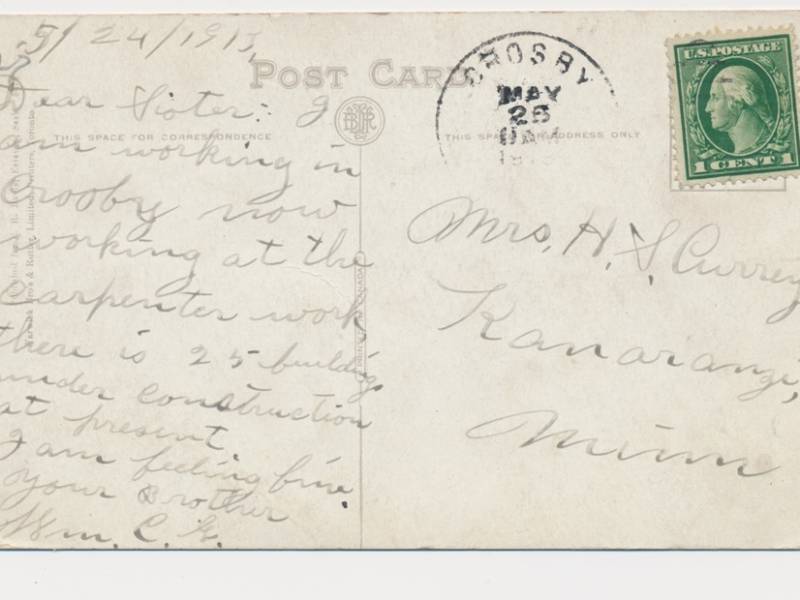 5/24/1913,
POST CARD
THIS SPACE FOR CORRESPONDENCE
THIS SPACE FOR ADDRESS ONLY
Dear Sister: I
am working in
Crosby now
working at the
Carpenter work,
there is 25 building
under construction
at present.
I am feeling fine.
your Brother
Wm. C. G.
CROSBY
MAY
26
U.S. POSTAGE
1 CENT 1
Mrs, H. S. Currey
Kanaranzi,
Minn